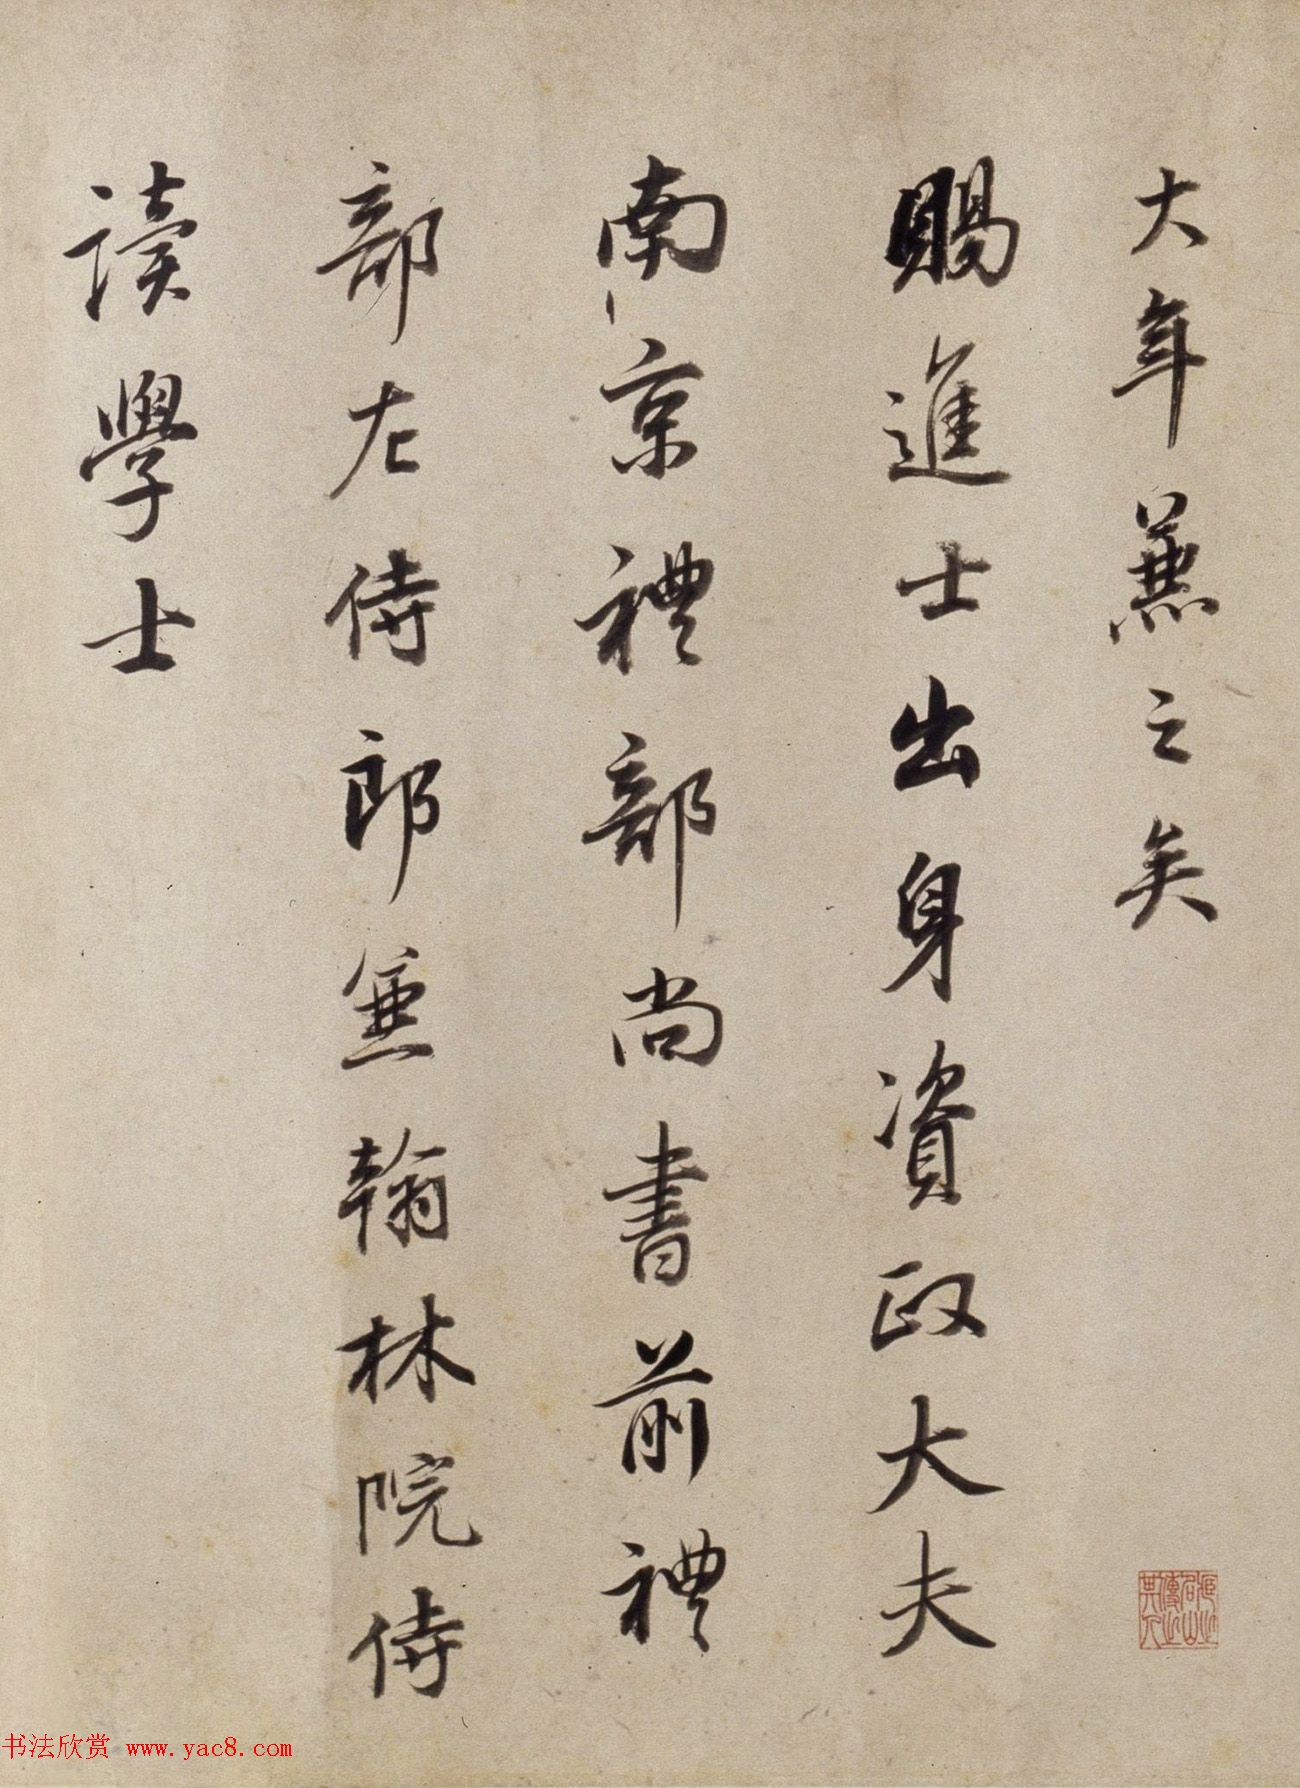 大年兼之矣
賜進士出身資政大夫
南京禮部尚書前禮
部左侍郎兼翰林院侍
讀學士
书法欣赏 www.yac8.com